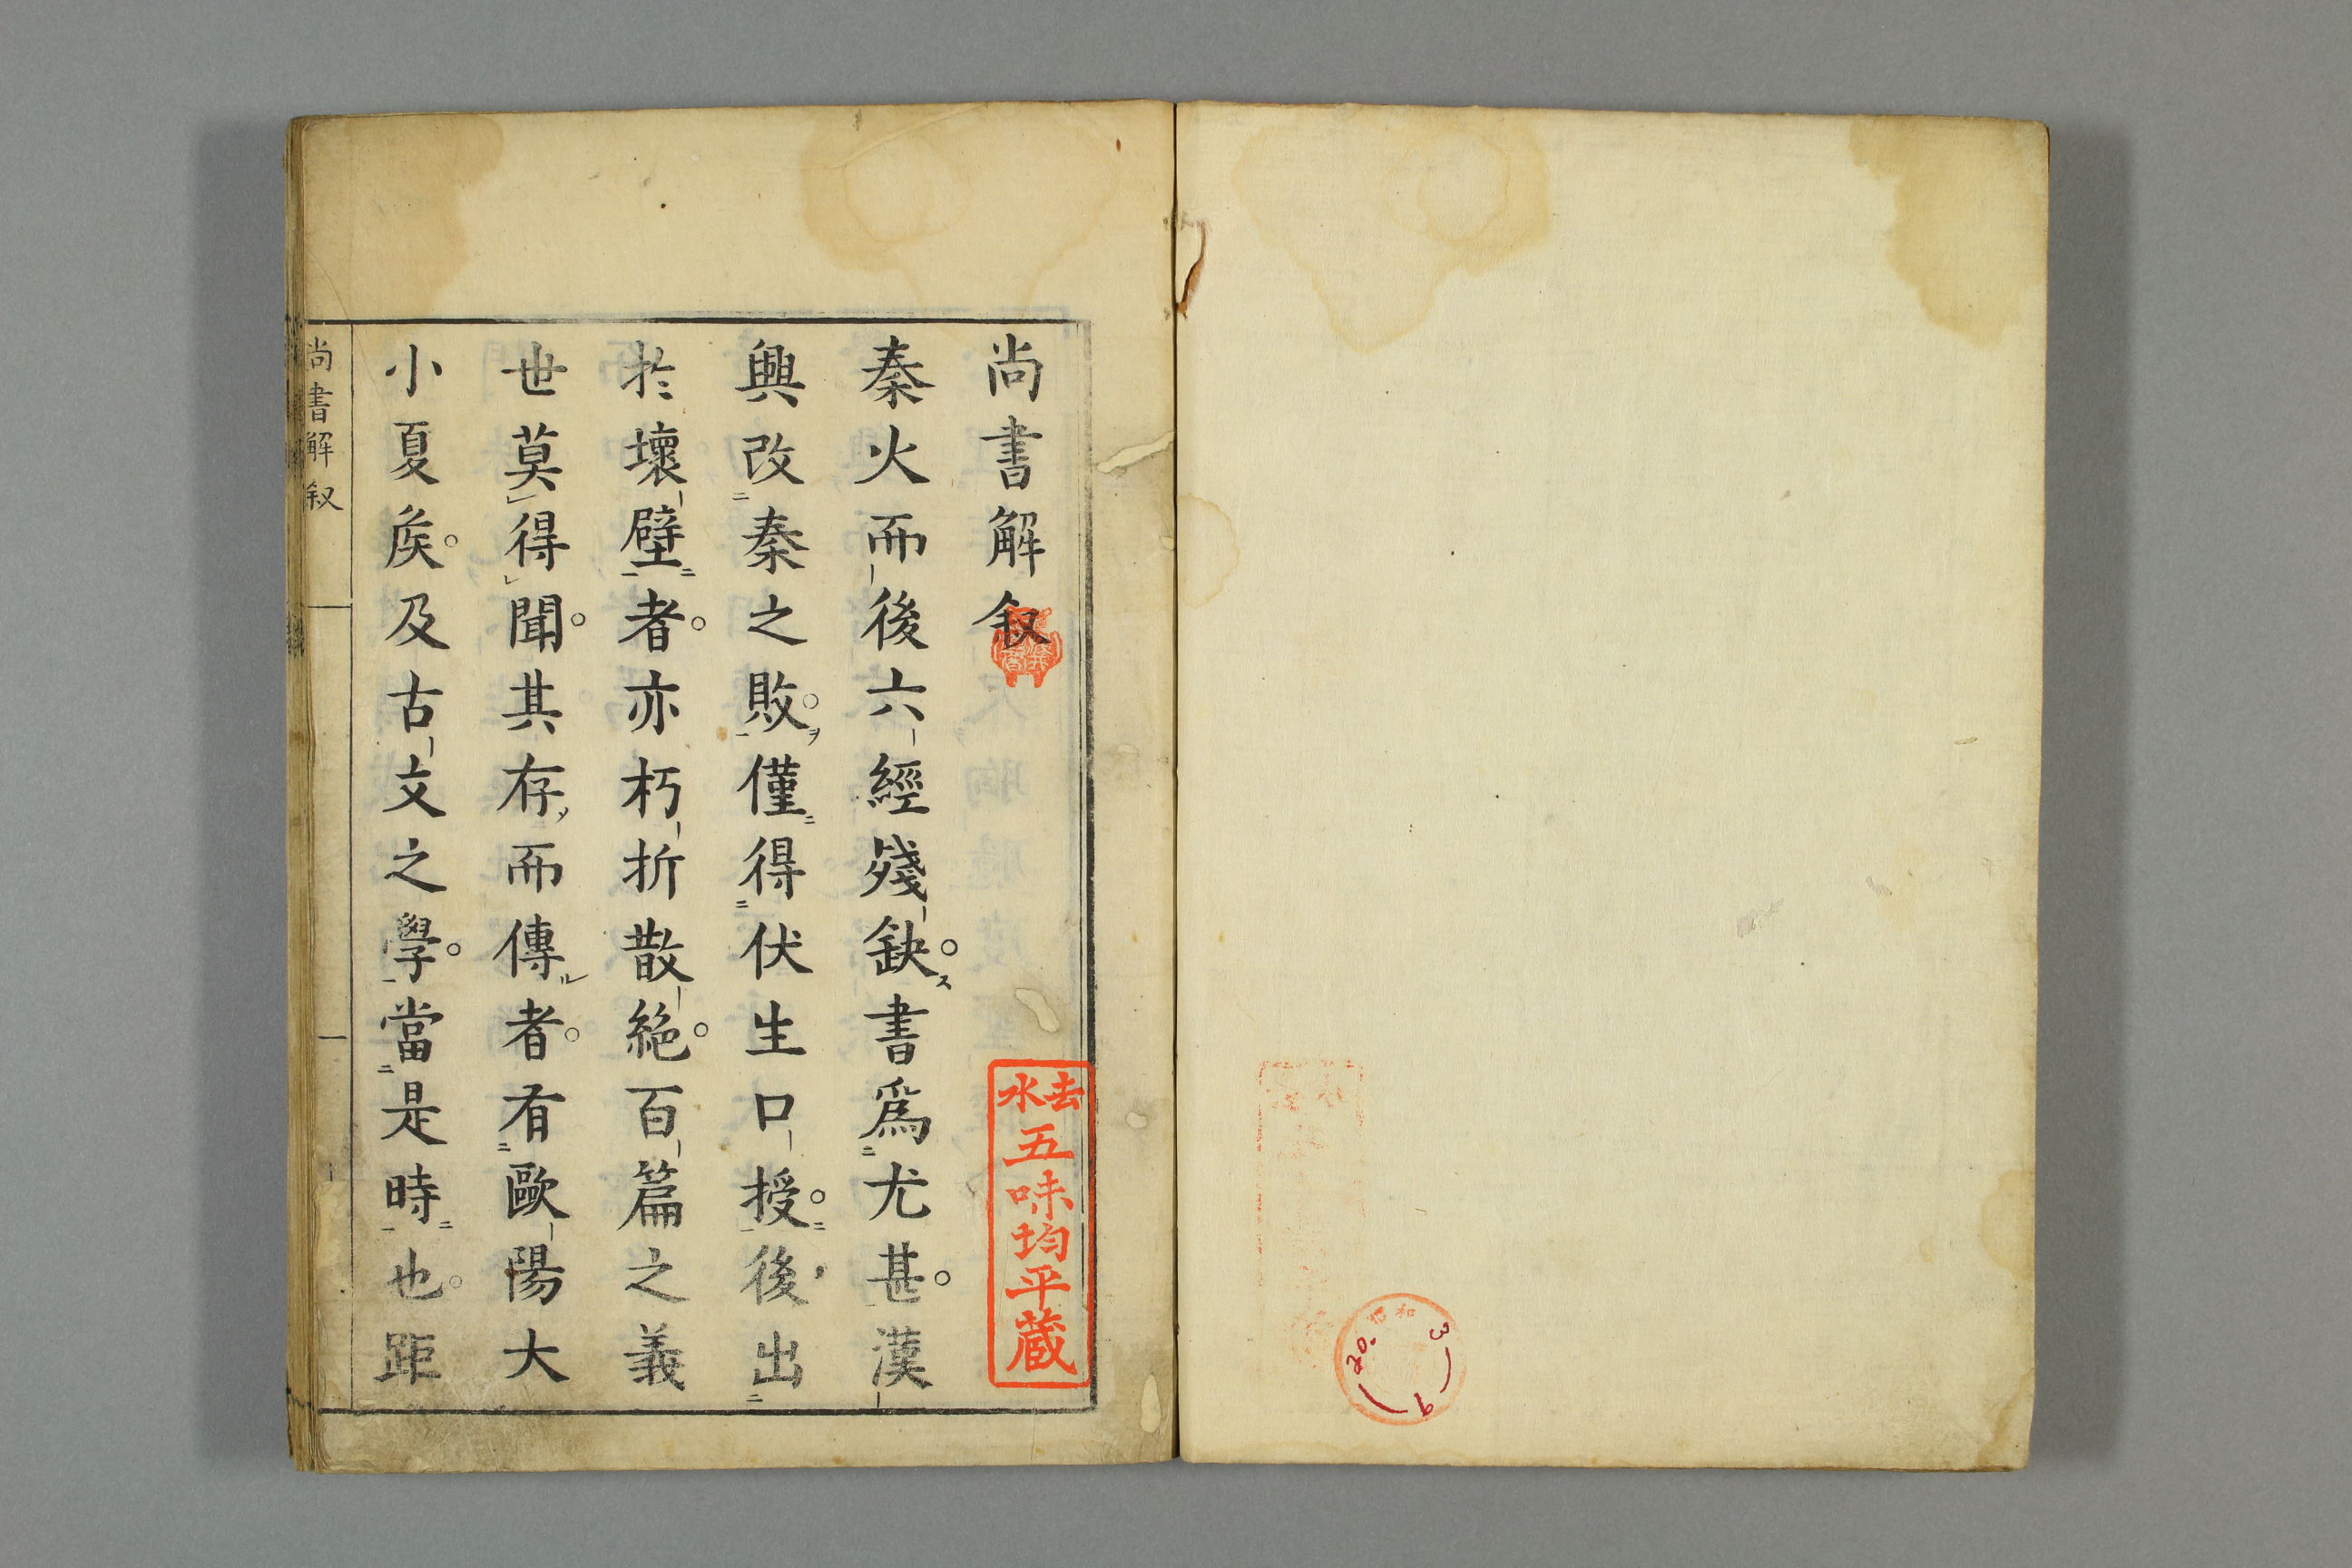 尚書解叙
秦火而後六經殘缺。ス書爲尤甚。漢
興改秦之敗。ヲ僅得伏生口授。後出
於壞壁者。亦朽折散絶。百篇之義
世莫得聞。其存而傳ル者。有歐陽大
小夏矦。及古文之學。當是時也。距
尚書解叙
一
去水
五味均平蔵
昭和
3
9
20.